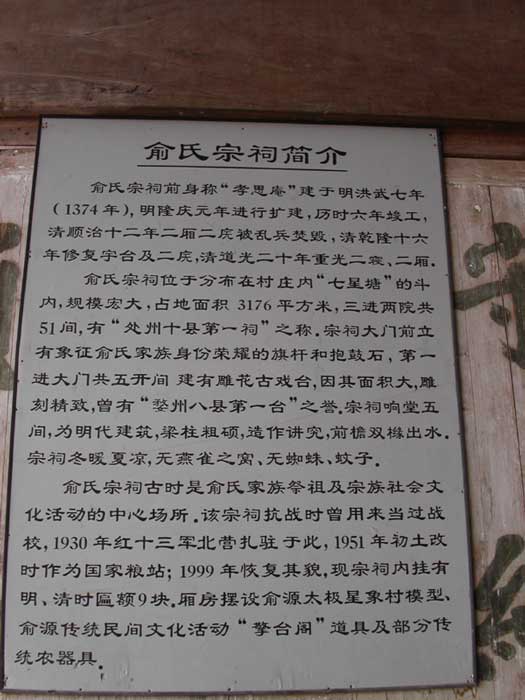 俞氏宗祠简介
俞氏宗祠前身称“孝思庵”建于明洪武七年
（1374年），明隆庆元年进行扩建，历时六年竣工，
清顺治十二年二厢二庑被乱兵焚毁，清乾隆十六
年修复宇台及二庑，清道光二十年重光二寝、二厢.
俞氏宗祠位于分布在村庄内“七星塘”的斗
内，规模宏大，占地面积 3176平方米，三进两院共
51间，有“处州十县第一祠”之称.宗祠大门前立
有象征俞氏家族身份荣耀的旗杆和抱鼓石，第一
进大门共五开间 建有雕花古戏台，因其面积大，雕
刻精致，曾有“婺州八县第一台”之誉.宗祠响堂五
间，为明代建筑，梁柱粗硕，造作讲究，前檐双橼出水.
宗祠冬暖夏凉，无燕雀之窝、无蜘蛛、蚊子.
俞氏宗祠古时是俞氏家族祭祖及宗族社会文
化活动的中心场所.该宗祠抗战时曾用来当过战
校，1930年红十三军北营扎驻于此，1951年初土改
时作为国家粮站；1999年恢复其貌，现宗祠内挂有
明、清时匾额9块.厢房摆设俞源太极星象村模型、
俞源传统民间文化活动“擎台阁”道具及部分传
统农器具.